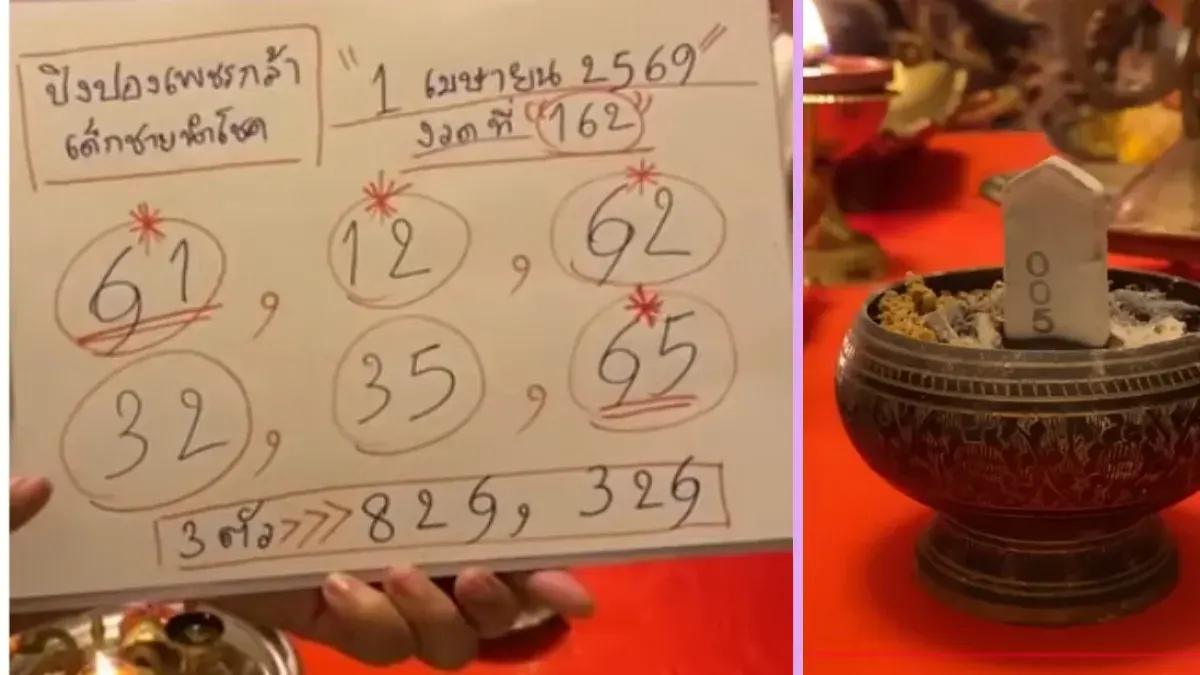 ปิงปองเพชรกล้า
เด็กชายนำโชค
"1 เมษายน 2569"
งวดที่ "162"
61, 12, 62
32, 35, 65
3 ตัว>>> 826, 326
005